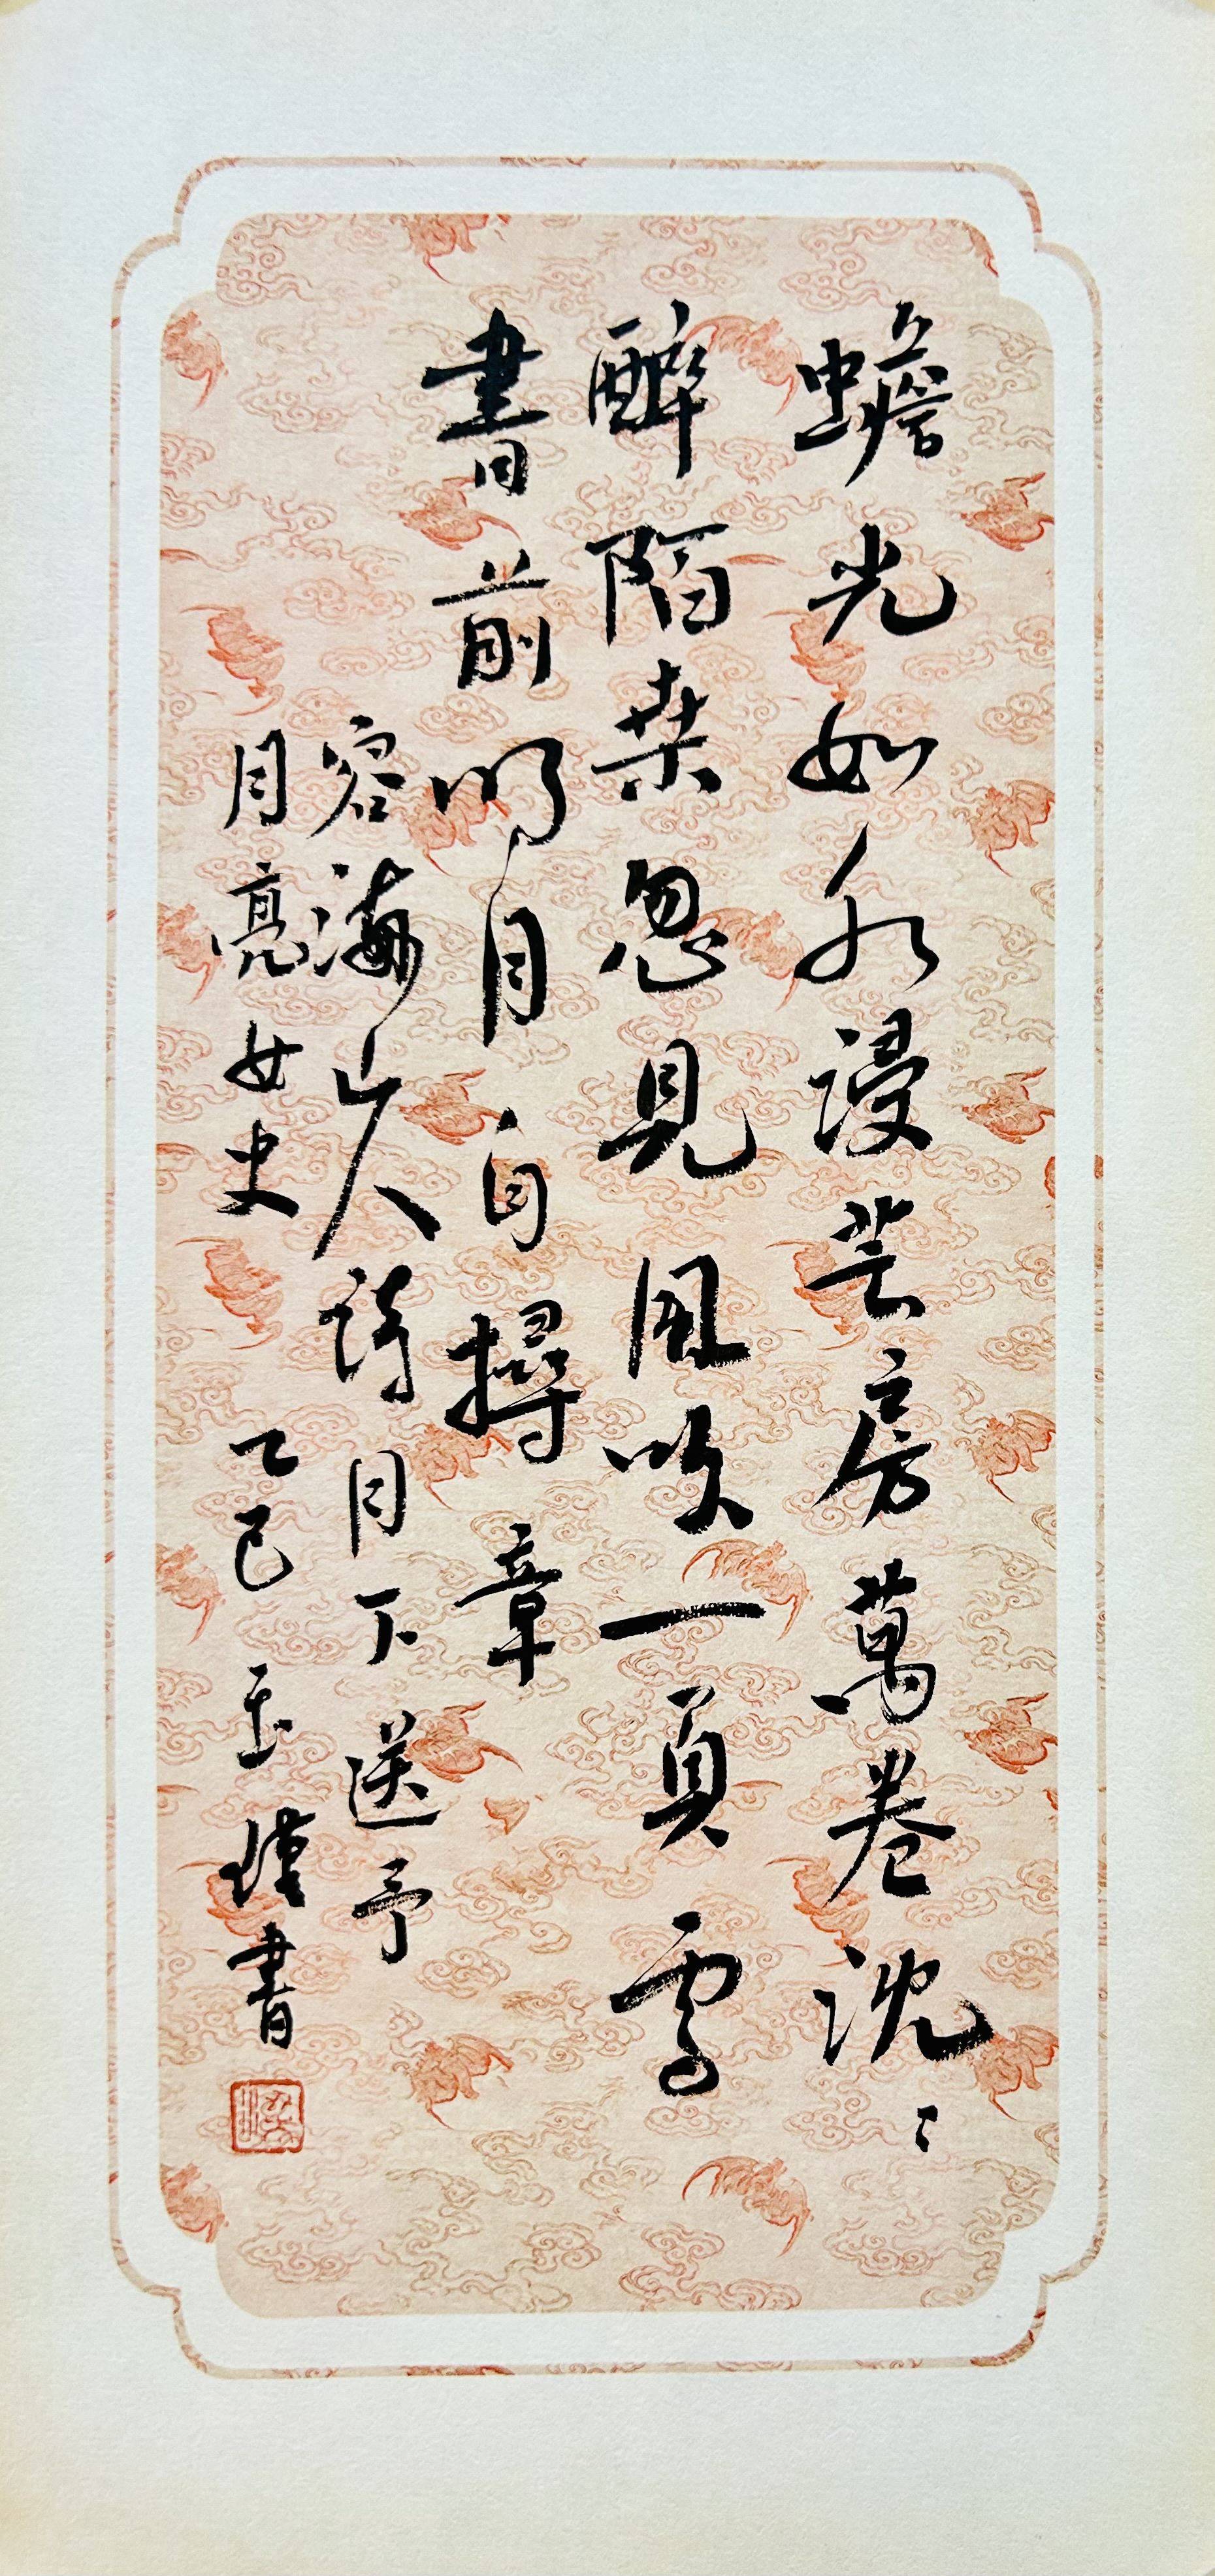 蟾光如水浸芸房萬卷沈〻
醉陌桒忽見風吹一頁雪
書前明月自撏章
容海大人詩月下送予
月亮女史 乙巳 玉瑾書